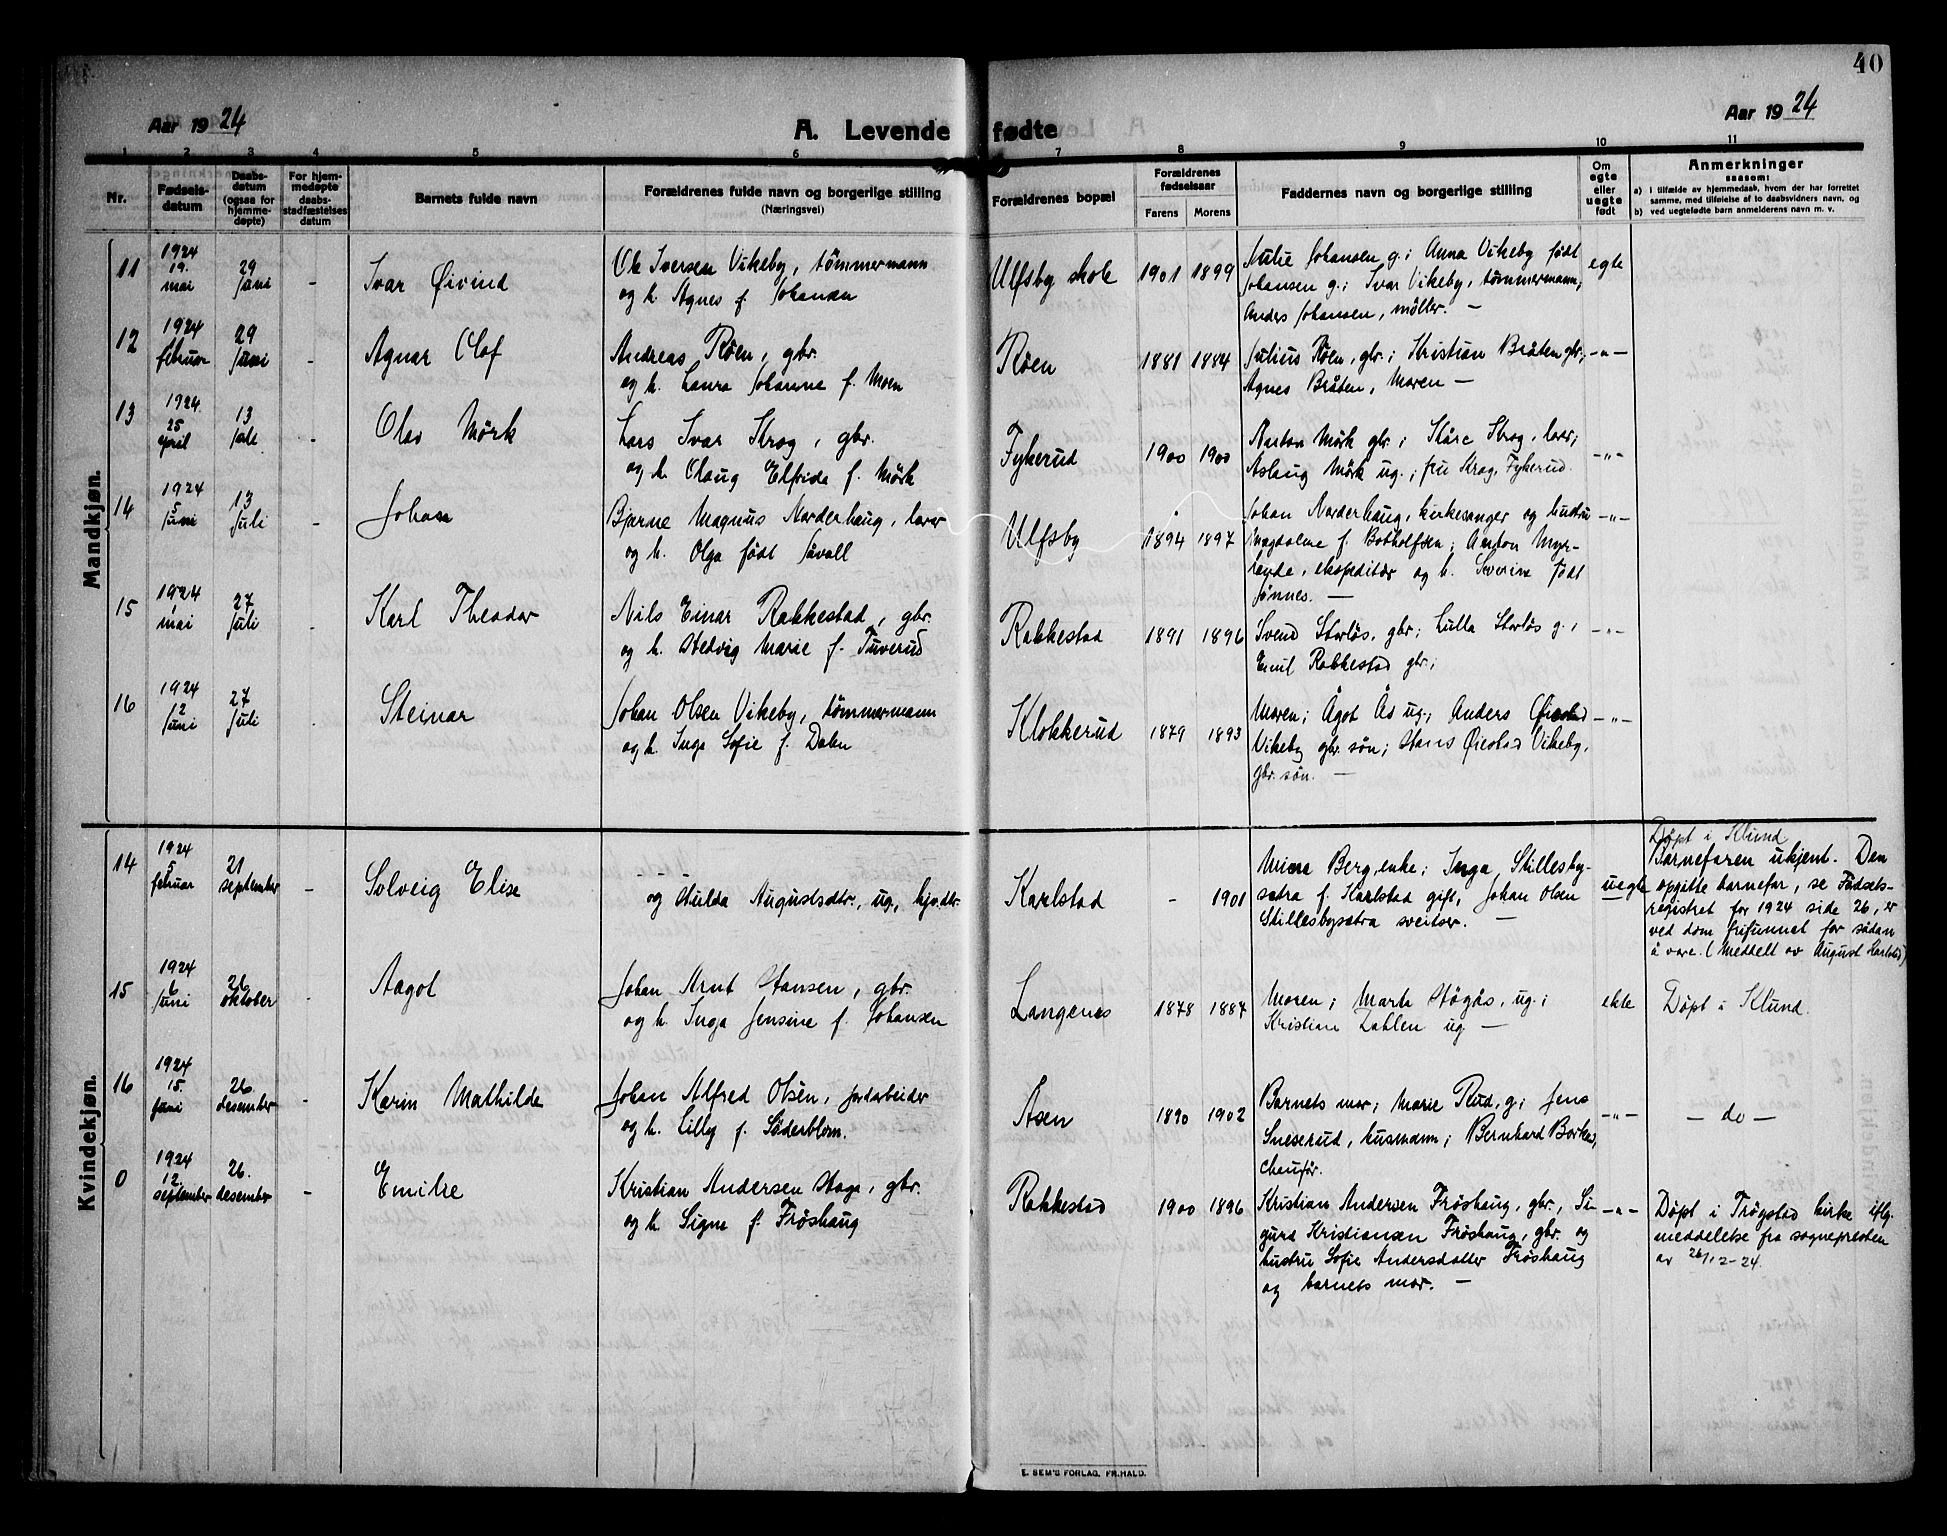 40
Aar 1924
A. Levende fødte
Aar 1924
1 2 3 4 5 6 7 8 9 10 11
Nr.
Fødsels-
datum
Daabs-
datum
(ogsaa for
hjemme-
døpte)
For hjem-
medøpte
daabs-
stadfæstelses
datum
Barnets fulde navn
Forældrenes fulde navn og borgerlige stilling
(Næringsvei)
Forældrenes bopæl
Forældrenes
fødselsaar
Farens Morens
Faddernes navn og borgerlige stilling
Om
egte
eller
uegte
født
Anmerkninger
saasom:
a) i tilfælde av hjemmedaab, hvem der har forrettet
samme, med tilføielse af to daabsvidners navn, og
b) ved uegtefødte barn anmelderens navn m. v.
Mandkjøn.
11
1924
19.
mai
29
Juni
-
Ivar Øivind
Ole Iversen Vikeby, tømmermann
og h. Agnes f. Johansen
Ulfsby skole
1901 1899
Johansen g.; Anna Vikeby født
Johansen g.; Ivar Vikeby, tømmermann;
Anders Johansen, møller. -
egte
12
1924
februar
29
Juni
-
Agnar Olaf
Andreas Røen, gbr.
og h. Laura Johanne f. Moen
Røen
1881 1884
Julius Røen, gbr.; Kristian Bråten gbr.
Agnes Bråten, Moren -
-"-
13
1924
25
april
13
Juli
-
Olav Mørk
Lars Ivar Krog, gbr.
og h. Olaug Elfrida f. Mørk
Fykerud
1900 1900
Anton Mørk gbr.; Kåre Krog, lærer;
Aslaug Mørk ug.; fru Krog, Fykerud.
-"-
14
1924
5
Juni
13
Juli
-
Johan
Bjarne Magnus Norderhaug, lærer
og h. Olga født Jøvall
Ulfsby
1894 1897
Johan Norderhaug, kirkesanger og hustru
Magdalene f. Botholfsen; Anton Myr-
lende, ekspeditør og h. Severine født
Jønnes. -
-"-
15
1924
1
mai
27
Juli
-
Karl Theodor
Nils Einar Rakkestad, gbr.
og h. Hedvig Marie f. Tuverud
Rakkestad
1891 1896
Svend Storløs, gbr.; Lulla Storløs g.,
Emil Rakkestad gbr.;
-"-
16
1924
12
Juni
27
Juli
Steinar
Johan Olsen Vikeby, tømmermann
og h. Inga Sofie f. Dalen
Klokkerud
1879 1893
Moren; Ågot Ås ug.; Anders Øiestad
Vikeby gbr. søn; Hans Øiestad Vikeby,
gbr. søn. -
-"-
Kvindekjøn.
14
1924
5
februar
21
september
-
Solveig Elise
og Hulda Augustsdtr., ug.,
Karlstad
- 1901
Berg, enke; Inga Stillesby-
sætra f. Karlstad gift, Johan Olsen
Stillesbysætra sveitser. -
uegte
Døpt i Klund
Barnefaren ukjent. Den
opgitte barnefar, se Fødsels-
registret for 1924 side 26, er
ved dom frifunnet for sådan
å være. (Meddelt av August Karlstad)
15
1924
6
Juni
26
oktober
-
Aagot
Johan Arnt Hansen, gbr.
og h. Inga Jensine f. Johansen
Langenes
1878 1887
Moren; Marta Høgås, ug.;
Kristian Dahlen ug -
ekte
Døpt i Klund.
16
1924
15.
Juni
26
desember
-
Karin Mathilde
Johan Alfred Olsen, jordarbeider
og h. Lilly f. Søderblom.
Åsen
1890 1902
Barnets mor; Marie Rud, g.; Jens
Sneserud, husmann; Bernhard Borkes,
chauffør.
-"-
- do -
0
1924
12.
september
26.
desember
-
Emilie
Kristian Andersen Haga, gbr.
og h. Signe f. Frøshaug
Rakkestad
1900 1896
Kristian Andersen Frøshaug, gbr., Si-
gurd Kristiansen Frøshaug, gbr. og
hustru Sofie Andersdatter Frøshaug
og barnets mor. -
-"-
Døpt i Trøgstad kirke iflg.
meddelelse fra sognepresten
av 26/12-24.
E. SEM'S FORLAG, FR.HALD.